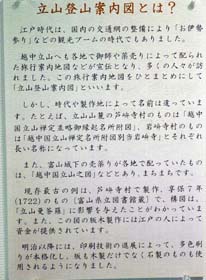 立山登山案内図とは？
江戸時代は、国内の交通網の整備により「お伊勢
参り」などの観光ブームの時代でもありました。
越中立山へも各地で御師や薬売りによって配られ
た旅行案内地図などが宣伝となり、多くの人々が訪
れました。この旅行案内地図をひとまとめにして
「立山登山案内図」といいます。
しかし、時代や製作地によって名前は違ってい
ます。たとえば、立山山麓の芦峅寺村のものは「越中
国立山禅定並略御縁起名所附図」、岩峅寺村のもの
は「越中国立山禅定名所附図別当岩峅寺」とそれぞれ
長い名称になっています。
また、富山城下の売薬りが各地で配っていたもの
は、「越中国立山之図」などとあり、まちまちです。
現存最古の例は、芦峅寺村で製作、享保７年
(1722)のもの（富山県立図書館蔵）で、構図は、
「立山曼荼羅」に影響を与えたことがわかっていま
す。また、この図の版木製作には江戸の人によって
資金が提供されています。
明治以降には、印刷技術の進展によって、多色刷
りが本格化し、版も木製だけでなく石製のものも使
用されるようになりました。